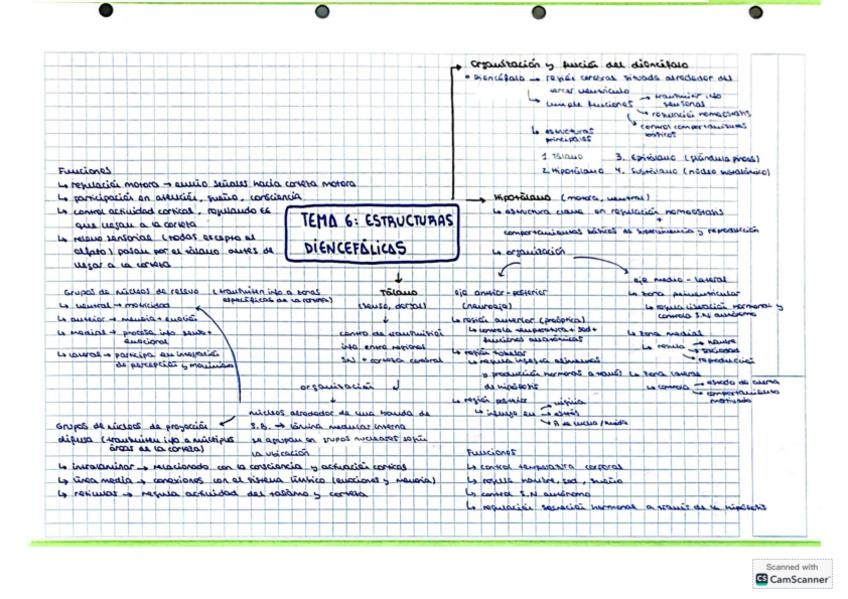 Organización y función del diencéfalo
• Diencéfalo → región cerebral situada alrededor del
tercer ventrículo
↳ cumple funciones → transmitir info
sensorial
→ regulación homeostasis
→ control comportamientos
básicos
↳ estructuras
principales
1. Tálamo 3. Epitálamo (glándula pineal)
2. Hipotálamo 4. Subtálamo (núcleo subtalámico)
Funciones
↳ regulación motora → envío señales hacia corteza motora
↳ participación en atención, sueño, consciencia
↳ control actividad cortical, regulando
que llegan a la corteza
↳ relevo sensorial (todas excepto el
olfato) pasan por el tálamo antes de
llegar a la corteza
TEMA 6: ESTRUCTURAS
DIENCEFÁLICAS
Hipotálamo (motora, ventral)
↳ estructura clave en regulación homeostasis
+
comportamientos básicos de supervivencia y reproducción
↳ organización
Grupos de núcleos de relevo (transmiten info a zonas
específicas de la corteza)
↳ ventral → motricidad
↳ anterior → memoria + emoción
↳ medial → procesa info
emocional
↳ lateral → participa en integración
de percepción y movimiento
Tálamo
(dorsal)
centro de transmisión
info entre regiones
SN + corteza cerebral
organización
núcleos alrededor de una banda de
S.B. → lámina medular interna
se agrupan en grupos nucleares según
la ubicación
Grupos de núcleos de proyección
difusa (transmiten info a múltiples
áreas de la corteza)
↳ intralaminar → relacionado con la consciencia y activación cortical
↳ línea media → conexiones con el sistema límbico (emociones y memoria)
↳ reticular → regula actividad del tálamo y corteza
eje anterior-posterior
↳ región anterior (preóptica)
↳ controla temperatura + sed +
funciones autonómicas
↳ región tuberal
↳ regula ingesta alimentaria
y producción hormonas a través
de hipófisis
↳ región posterior
↳ influye en → vigilia
→ estrés
→ R de lucha/huida
eje medio-lateral
↳ zona periventricular
↳ regula liberación hormonal y
controla S.N autónomo
↳ zona medial
↳ regula → hambre
→ saciedad
→ reproducción
↳ zona lateral
↳ controla → estado de alerta
→ comportamiento
motivado
Funciones
↳ control temperatura corporal
↳ regula hambre, sed, sueño
↳ control S.N autónomo
↳ regulación secreción hormonal a través de la hipófisis
Scanned with
CS CamScanner